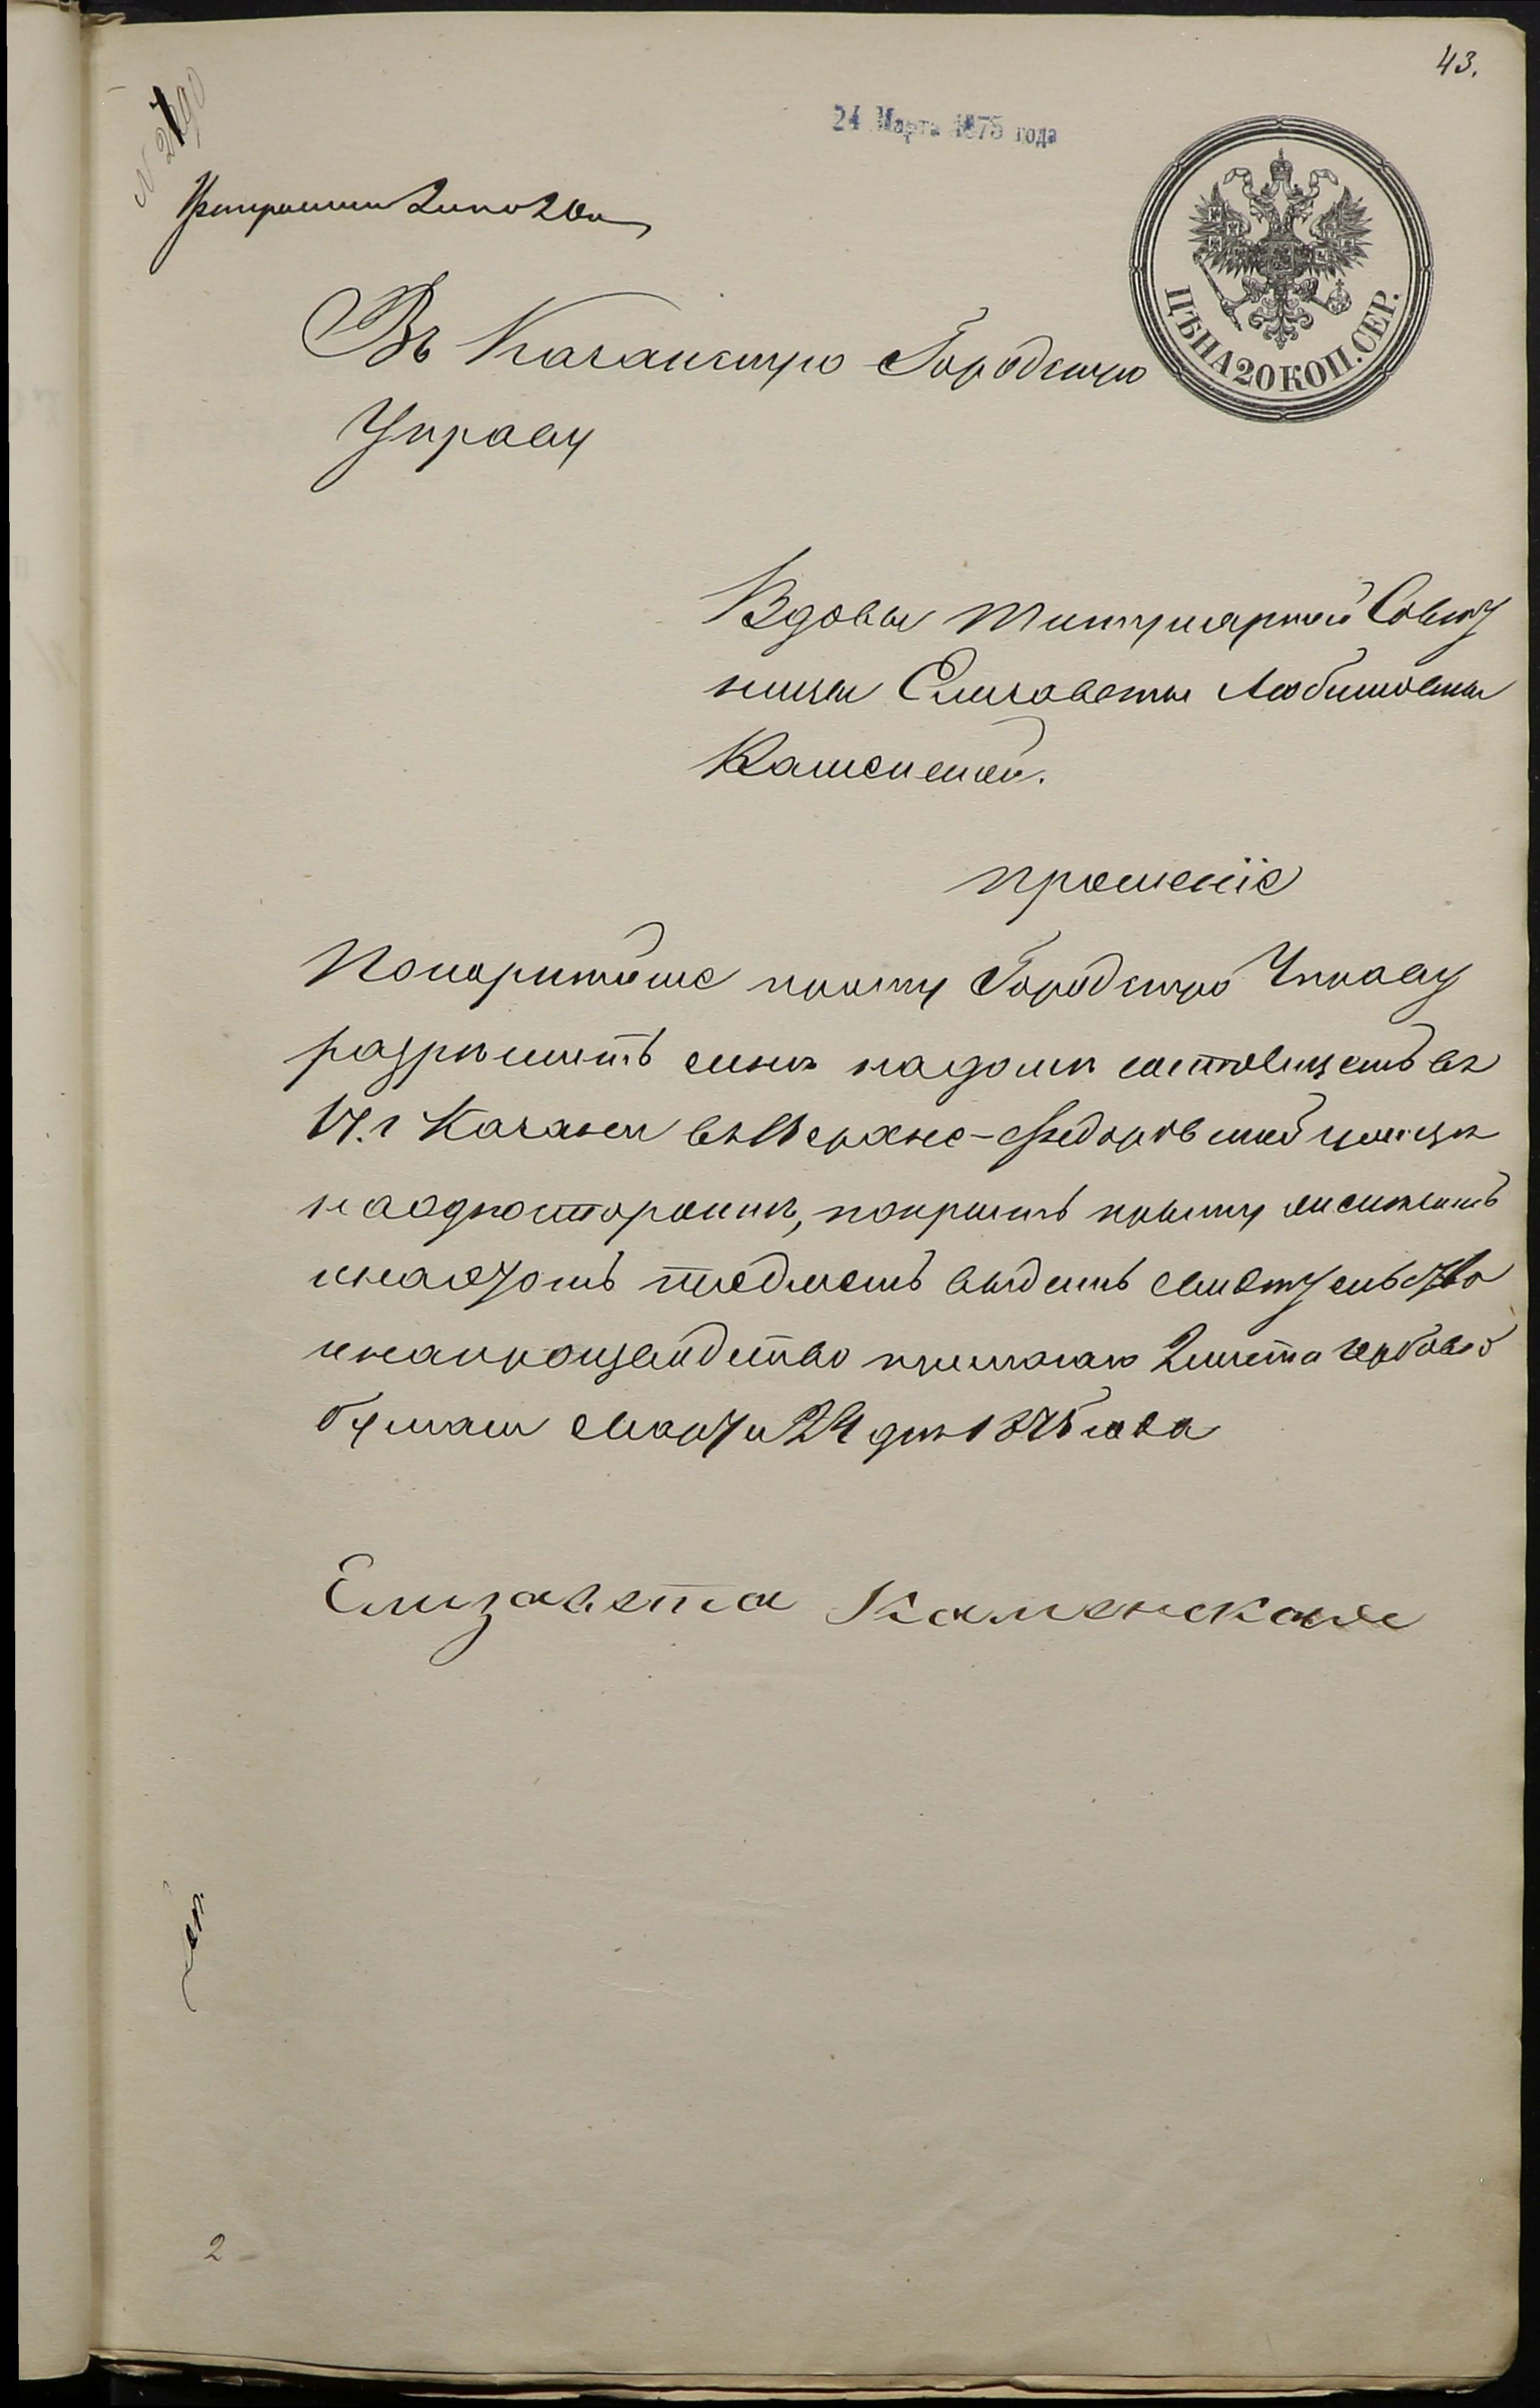 43.
24 Марта 1875 года
ЦѢНА 20 КОП. СЕР.
Въ Казанскую Городскую
Управу
Вдовы Титулярной Совѣт
ницы Елизаветы Любимовны
Каменской.
прошеніе
Покорнѣйше прошу Городскую Управу
разрѣшить мнѣ на домѣ состоящемъ въ
Казани въ Верхне-Федоровской улицѣ
на одной сторонѣ, покрыть крышу
выдать свидѣтельство
2 листа гербовой
бумаги Марта 24 дня 1875 года
Елизавета Каменская
2